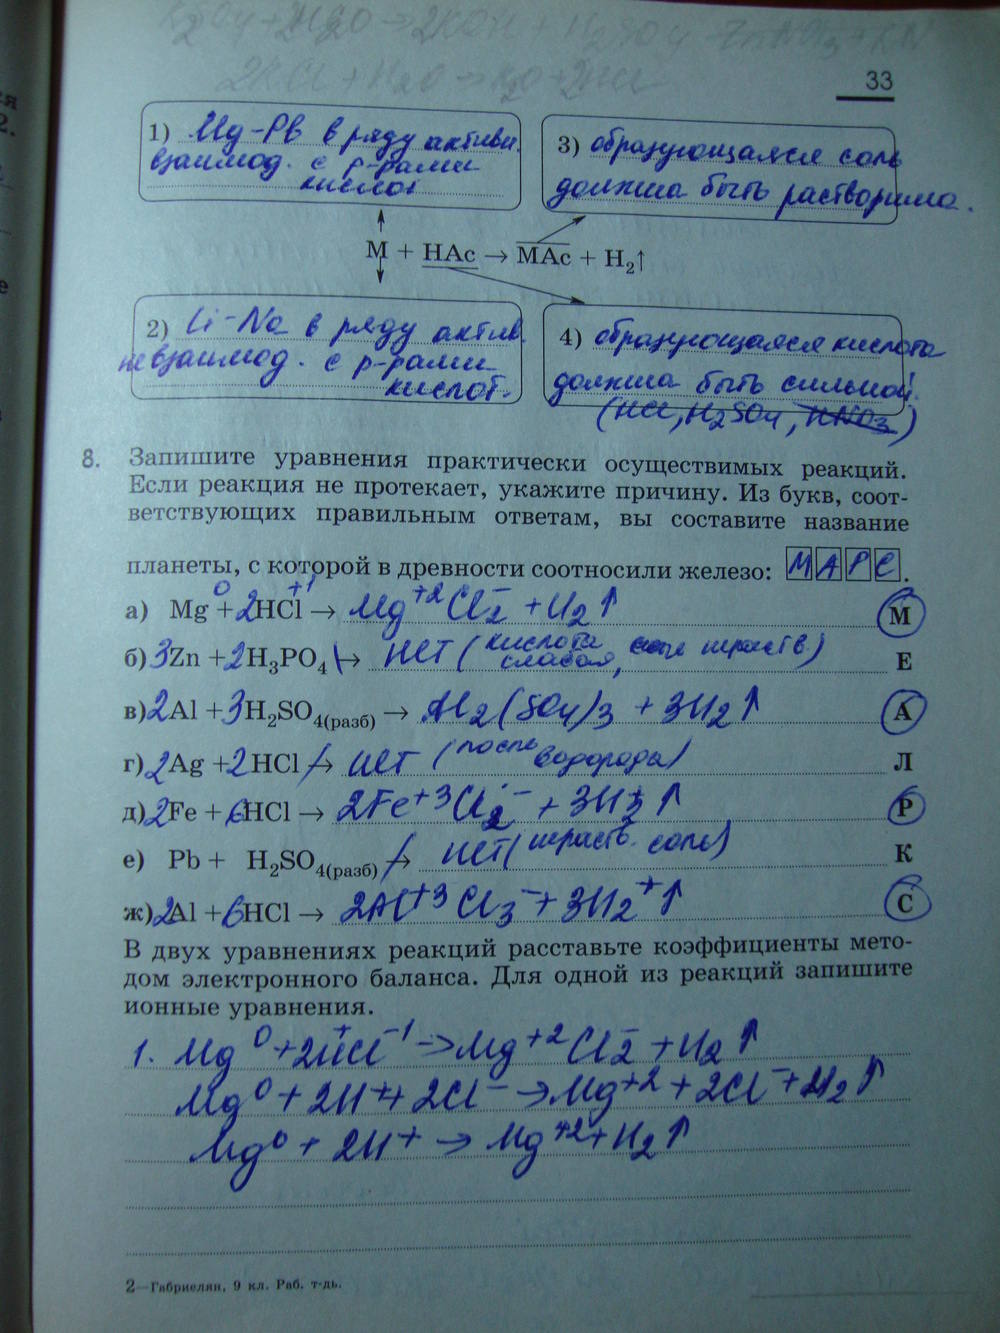 33
1) Mg-Pb в ряду активн.
взаимод. с р-рами
кислот
3) образующаяся соль
должна быть растворима.
M + HAc → MAc + H₂↑
2) Li-Na в ряду актив.
не взаимод. с р-рами
кислот.
4) образующаяся кислота
должна быть сильной!
(HCl, H₂SO₄, HNO₃)
8. Запишите уравнения практически осуществимых реакций.
Если реакция не протекает, укажите причину. Из букв, соот-
ветствующих правильным ответам, вы составите название
планеты, с которой в древности соотносили железо: МАРС.
а) Mg⁰ + 2H⁺¹Cl → Mg⁺²Cl₂⁻ + H₂↑ М
б) 3Zn + 2H₃PO₄ → нет (кислота слабая, нераств.) Е
в) 2Al + 3H₂SO₄(разб) → Al₂(SO₄)₃ + 3H₂↑ А
г) 2Ag + 2HCl → нет (после водорода) Л
д) 2Fe + 6HCl → 2Fe⁺³Cl₂⁻ + 3H₂↑ Р
е) Pb + H₂SO₄(разб) → нет (нераств. соль) К
ж) 2Al + 6HCl → 2Al⁺³Cl₃⁻ + 3H₂⁺↑ С
В двух уравнениях реакций расставьте коэффициенты мето-
дом электронного баланса. Для одной из реакций запишите
ионные уравнения.
1. Mg⁰ + 2H⁺Cl⁻¹ → Mg⁺²Cl₂⁻ + H₂↑
Mg⁰ + 2H⁺ + 2Cl⁻ → Mg⁺² + 2Cl⁻ + H₂↑
Mg⁰ + 2H⁺ → Mg⁺² + H₂↑
2—Габриелян, 9 кл. Раб. т-дь.